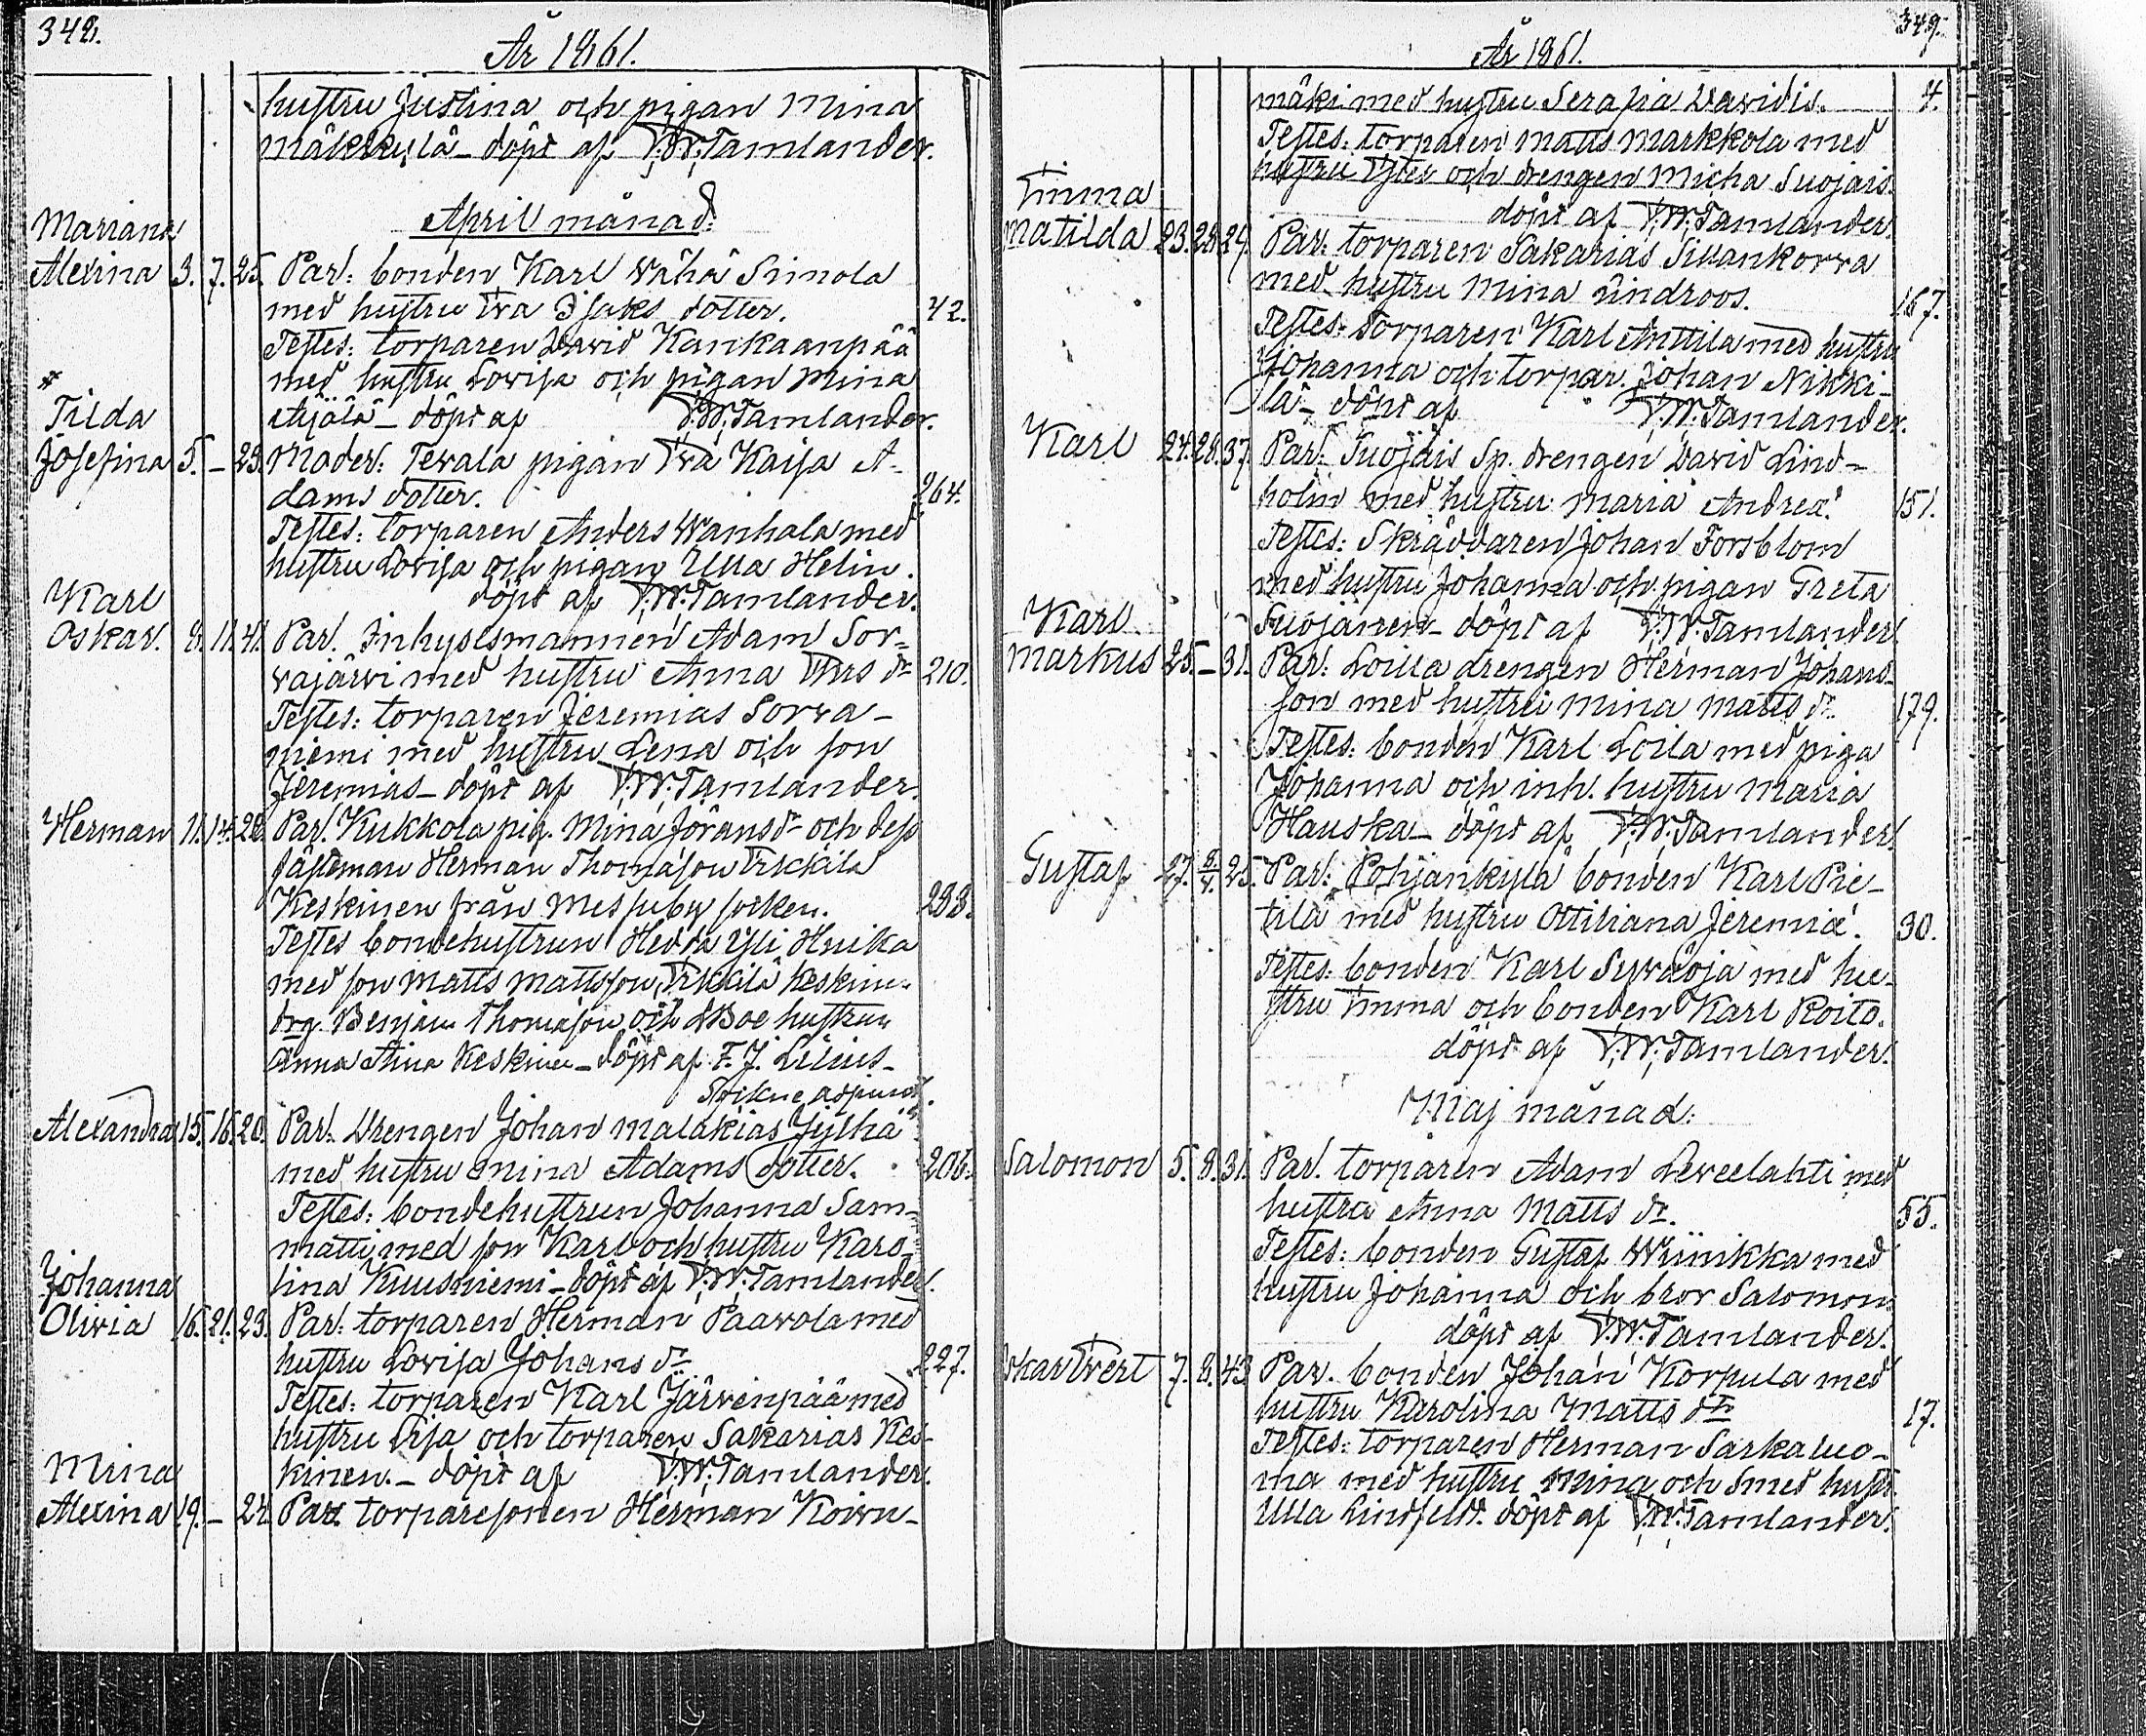 348.
År 1861.
hustru Justina och pigan Mina
Mäkkylä - döpt af V.W. Tamlander.
April månad:
Mariana
Alexina 3. 7. 25. Par: bonden Karl Wähä Simola
med hustru Eva Isaks dotter. 42.
Testes: torparen David Kankaanpää
med hustru Lovisa och pigan Mina
Äijälä - döpt af V.W. Tamlander.
Tilda
Josefina 5. - 23. Moder: Tevala pigan Eva Kaisa A-
dams dotter. 264.
Testes: torparen Anders Wanhala med
hustru Lovisa och pigan Ulla Helin.
döpt af V.W. Tamlander.
Karl
Oskar. 8. 11. 41. Par. Inhysesmannen Adam Sor-
vajärvi med hustru Anna Ers dr 210.
Testes: torparen Jeremias Sorva-
niemi med hustru Lena och son
Jeremias - döpt af V.W. Tamlander.
Herman 11. 14. 28. Par. Kukkola pig. Mina Jöransdr och dess
fästeman Herman Thomasson Erkkilä
Keskinen från Messuby socken. 233.
Testes bondehustrun Hedda Yli Hnika
med son Matts Mattsson, Erkkilä Keskinen
drg. Benjam Thomasson och hustrun
Anna Stina Keskinen - döpt af F. J. Lilius -
adjunct.
Alexandra 15. 16. 20. Par. Drengen Johan Malakias Jylhä
med hustru Mina Adams dotter. 206.
Testes: bondehustrun Johanna Sam-
matti med son Karl och hustru Karo-
lina Kuusniemi - döpt af V.W. Tamlander.
Johanna
Olivia 16. 21. 23. Par: torparen Herman Paavola med
hustru Lovisa Johans dr 227.
Testes: torparen Karl Järvenpää med
hustru Lisa och torparen Sakarias Kes-
kinen. - döpt af V.W. Tamlander.
Mina
Alexina 19. - 24. Par. torparesonen Herman Koivu-
349.
År 1861.
mäki med hustru Serafia Davidis. 4.
Testes: torparen Matts Markkola med
hustru Ester och drengen Micha Suojais.
döpt af V.W. Tamlander.
Emma
Matilda 23. 28. 29. Par: torparen Sakarias Sillankorva
med hustru Mina Lindroos. 167.
Testes: Torparen Karl Anttila med hustru
Johanna och torpar. Johan Nikki-
lä - döpt af V.W. Tamlander.
Karl 24. 28. 37. Par: Suojäis Sp. drengen David Lind-
holm med hustru Maria Andreæ. 151.
Testes: Skräddaren Johan Forsblom
med hustru Johanna och pigan Greta
Suojainen - döpt af V.W. Tamlander.
Karl
Markus 25. - 31. Par: Loilla drengen Herman Johans-
son med hustru Mina Matts dr. 179.
Testes: bonden Karl Loila med piga
Johanna och inh. hustru Maria
Hauska - döpt af V.W. Tamlander.
Gustaf 27. 5/4. 25. Par: Pohjankylä bonden Karl Pie-
tilä med hustru Ottiliana Jeremiæ. 30.
Testes. bonden Karl Syväoja med hu-
stru Emma och bonden Karl Roito.
döpt af V.W. Tamlander.
Maj månad:
Salomon 5. 8. 31. Par. torparen Adam Leveelahti med
hustru Anna Matts dr. 55.
Testes: bonden Gustaf Wiinikka med
hustru Johanna och bror Salomon
döpt af V.W. Tamlander.
Oskar Evert 7. 8. 43 Par. bonden Johan Korpula med
hustru Karolina Matts dr 17.
Testes: torparen Herman Sarkaluo-
ma med hustru Mina och Smed hustr.
Ulla Lindfeldt. döpt af V.W. Tamlander.